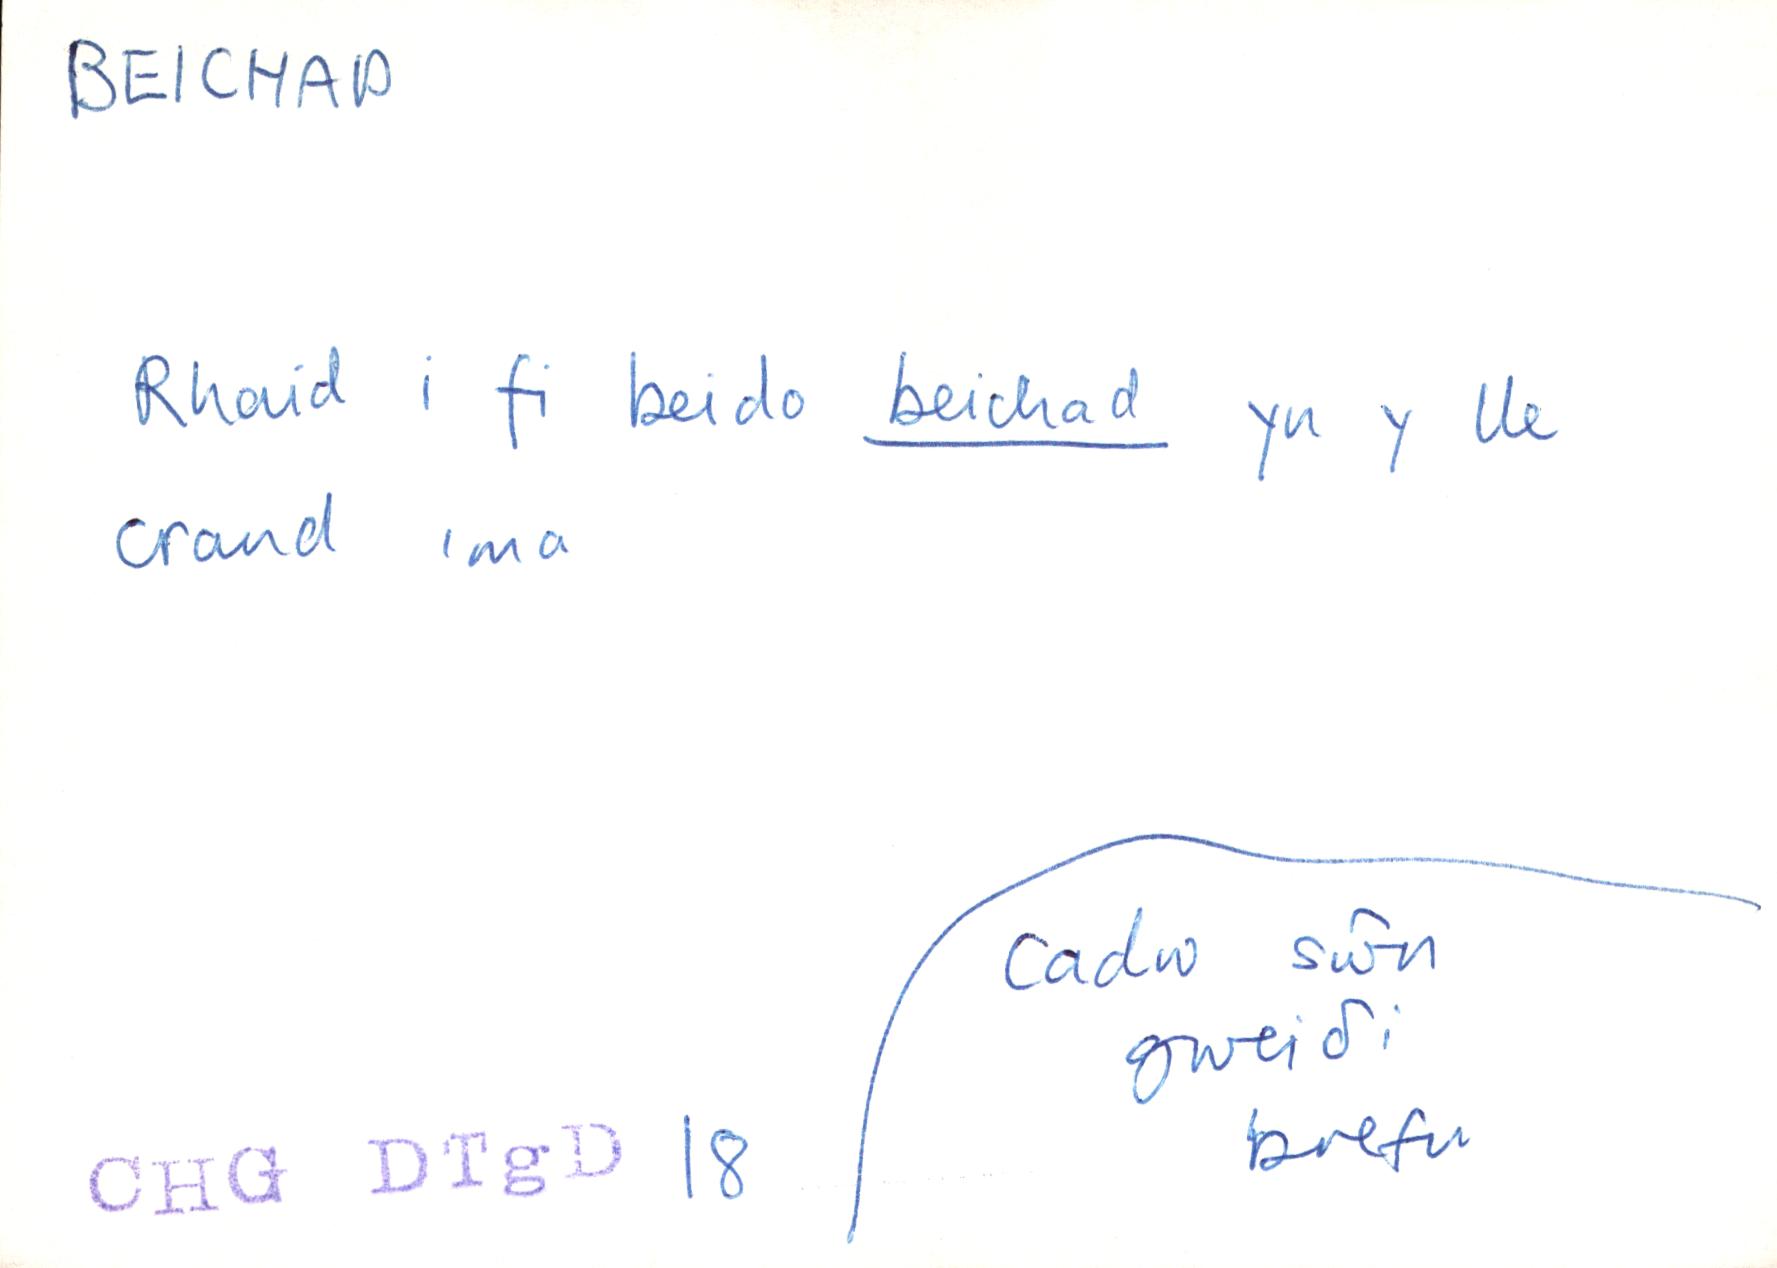 BEICHAD
Rhaid i fi beido beichad yn y lle
crand ima
Cadw sŵn
gweiδi
brefu
CHG DTgD 18